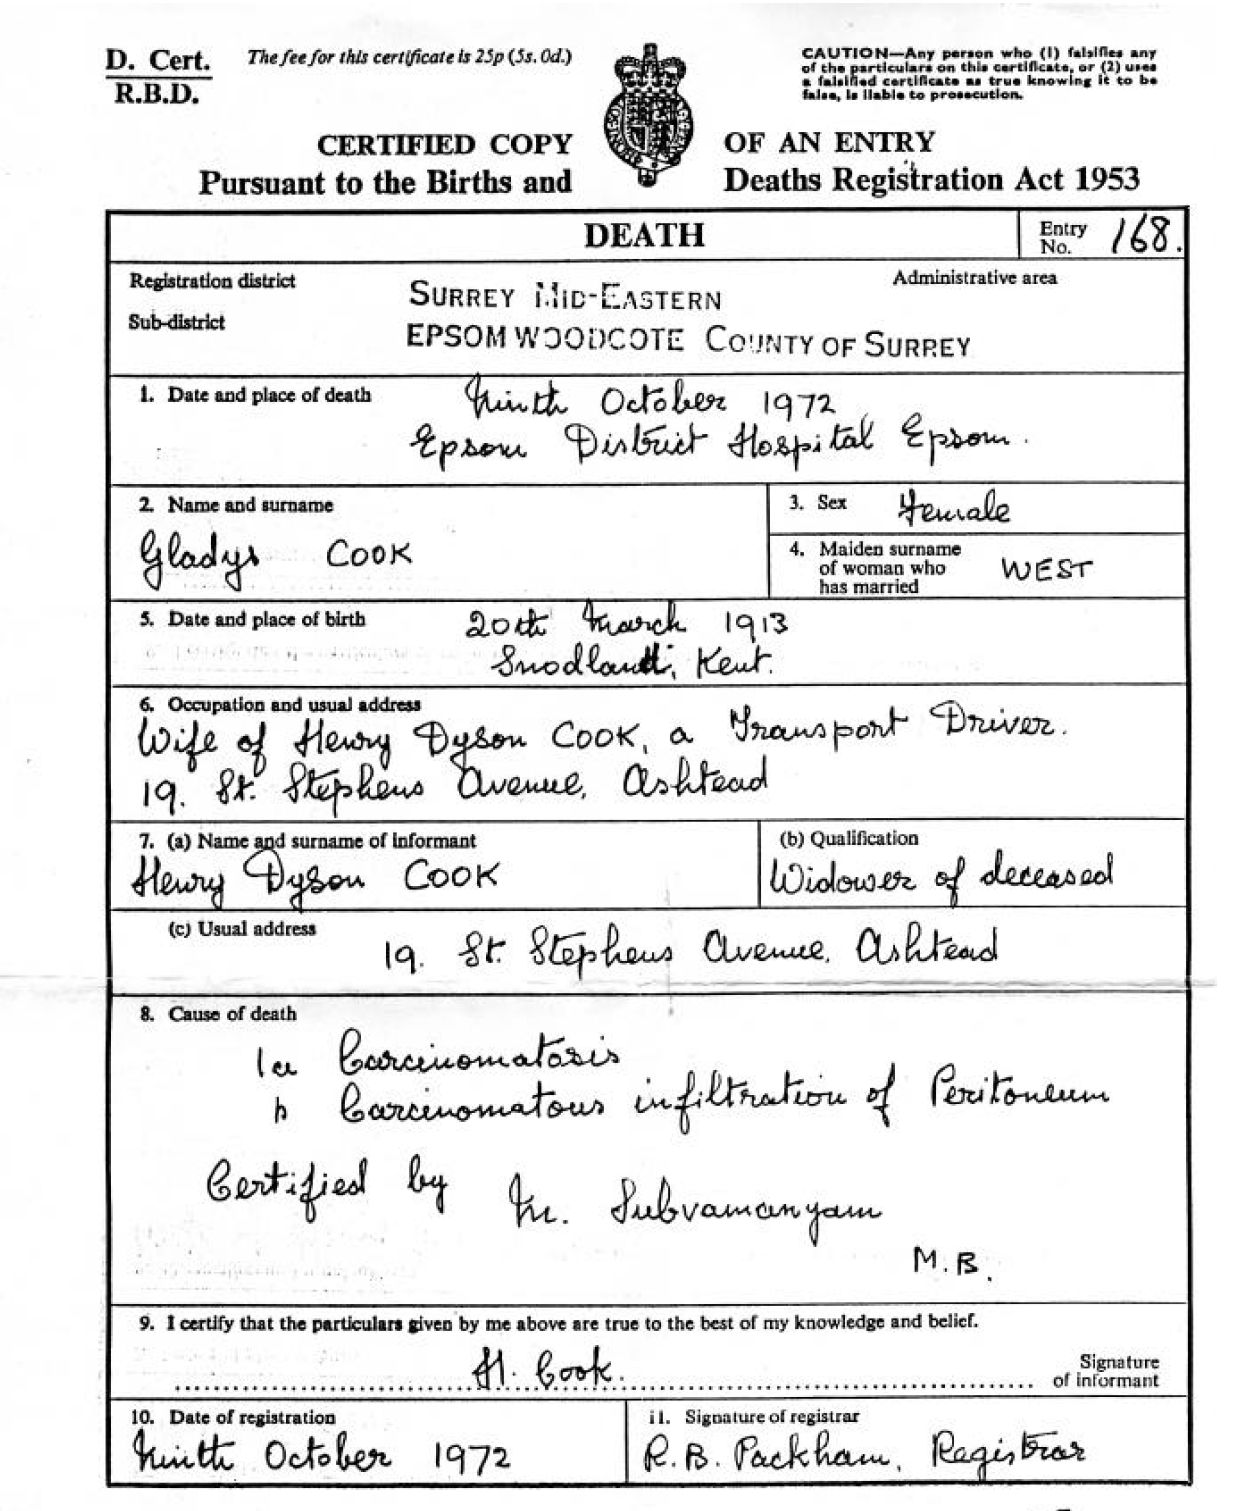 D. Cert.
R.B.D.
The fee for this certificate is 25p (5s. 0d.)
CAUTION—Any person who (1) falsifies any
of the particulars on this certificate, or (2) uses
a falsified certificate as true knowing it to be
false, is liable to prosecution.
CERTIFIED COPY OF AN ENTRY
Pursuant to the Births and Deaths Registration Act 1953
DEATH
Entry No. 168.
Registration district
Administrative area
SURREY MID-EASTERN
Sub-district
EPSOM WOODCOTE COUNTY OF SURREY
1. Date and place of death
Ninth October 1972
Epsom District Hospital Epsom.
2. Name and surname
Gladys COOK
3. Sex Female
4. Maiden surname
of woman who
has married
WEST
5. Date and place of birth
20th March 1913
Snodland, Kent.
6. Occupation and usual address
Wife of Henry Dyson COOK, a Transport Driver.
19. St. Stephens Avenue, Ashtead
7. (a) Name and surname of informant
Henry Dyson COOK
(b) Qualification
Widower of deceased
(c) Usual address
19. St. Stephens Avenue, Ashtead
8. Cause of death
1a Carcinomatosis
b Carcinomatous infiltration of Peritoneum
Certified by M. Subvamanyam
M.B.
9. I certify that the particulars given by me above are true to the best of my knowledge and belief.
H. Cook.
Signature
of informant
10. Date of registration
Ninth October 1972
11. Signature of registrar
R.B. Packham, Registrar